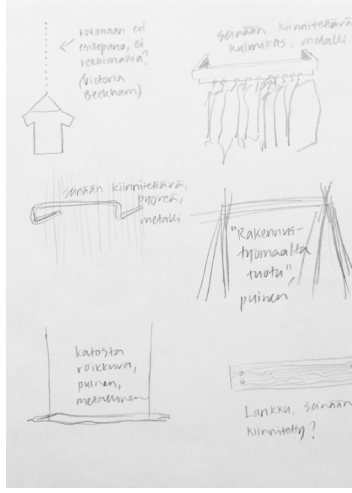 kokonaan eri
esillepano, ei
rekkimäistä?
(Victoria
Beckham)
seinään kiinnitettävä
kulmikas, metalli
seinään kiinnitettävä,
pyöreä,
metalli
"Rakennus-
työmaalta
tuotu",
puinen
katosta
roikkuva,
puinen,
metallinen
Lankku, seinään
kiinnitetty?